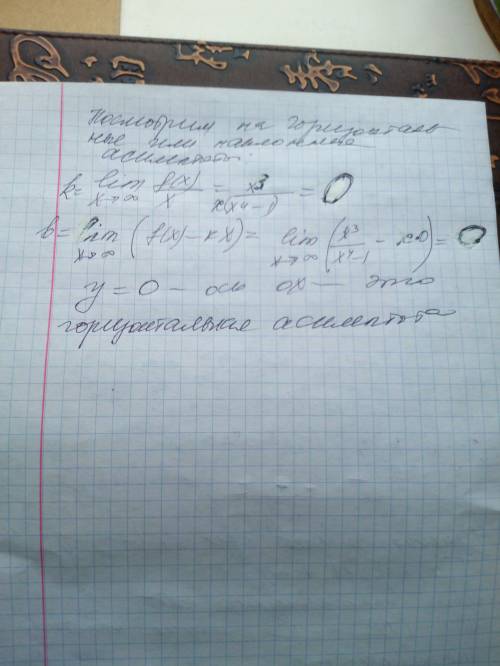 Посмотрим на горизонталь
ные или наклонные
асимптоты:
k = lim x→∞ f(x)/x = x³/x(x⁴-1) = 0
b = lim x→∞ (f(x) - kx) = lim x→∞ (x³/x⁴-1 - x·0) = 0
y = 0 - ось ox - это
горизонтальная асимптота